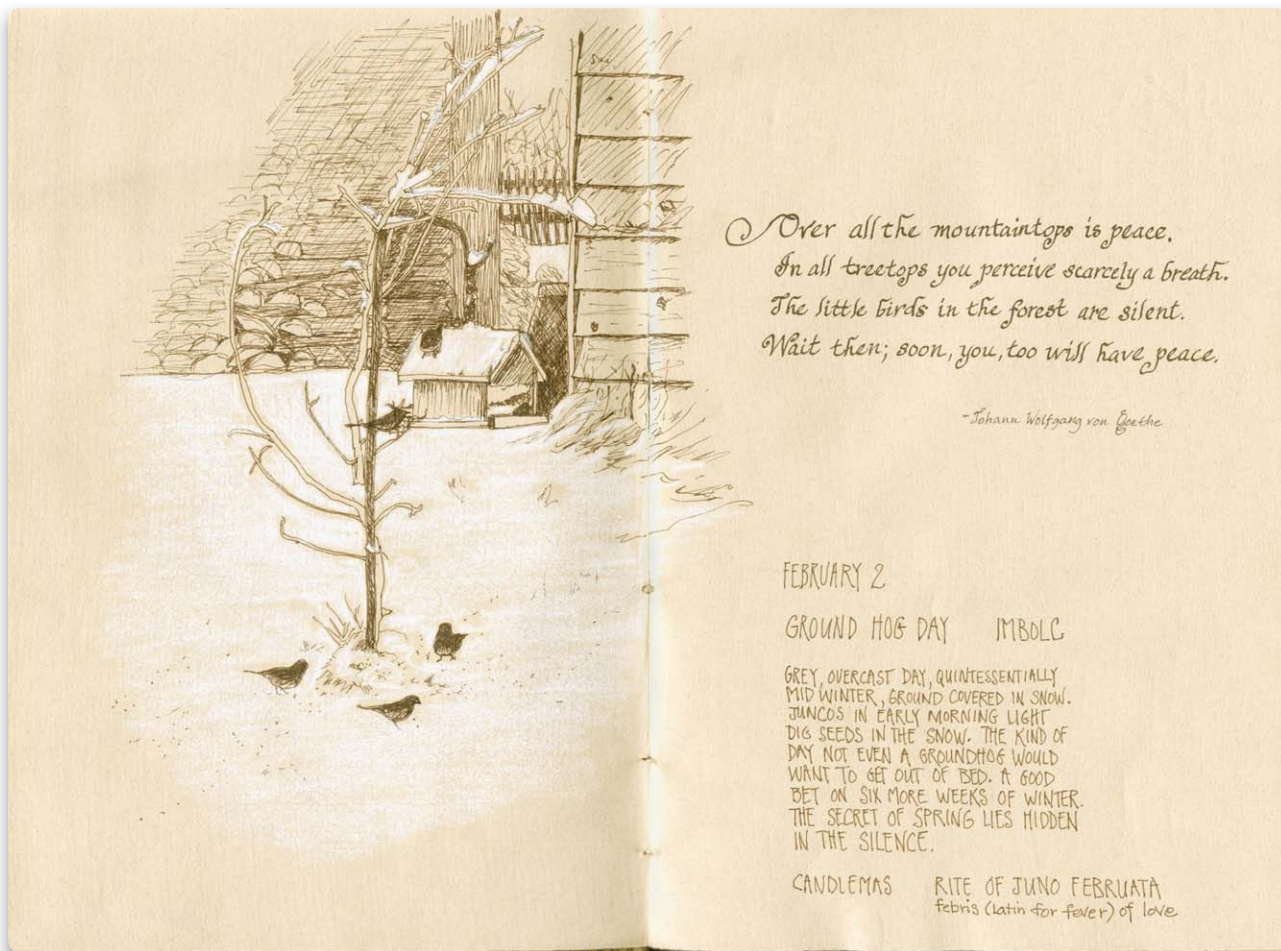 Over all the mountaintops is peace.
In all treetops you perceive scarcely a breath.
The little birds in the forest are silent.
Wait then; soon, you, too will have peace.
-Johann Wolfgang von Goethe
FEBRUARY 2
GROUND HOG DAY IMBOLC
GREY, OVERCAST DAY, QUINTESSENTIALLY
MID WINTER, GROUND COVERED IN SNOW.
JUNCOS IN EARLY MORNING LIGHT
DIG SEEDS IN THE SNOW. THE KIND OF
DAY NOT EVEN A GROUNDHOG WOULD
WANT TO GET OUT OF BED. A GOOD
BET ON SIX MORE WEEKS OF WINTER.
THE SECRET OF SPRING LIES HIDDEN
IN THE SILENCE.
CANDLEMAS RITE OF JUNO FEBRUATA
febris (Latin for fever) of love